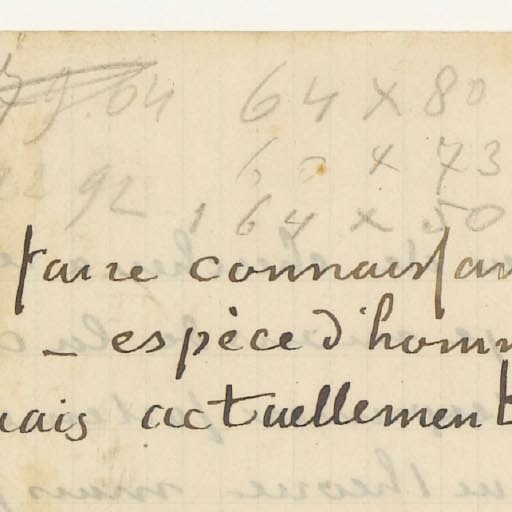 79.04 64 x 80
60 x 73
92 1 64 x 50
faire connaissan
— espèce d'homm
uais actuellement